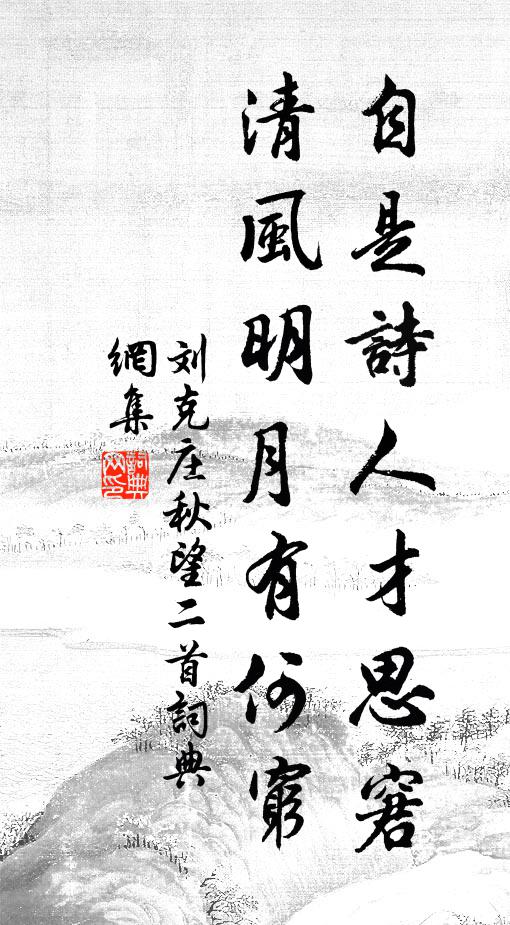 自是詩人才思窘
清風明月有何窮
刘克庄秋望二首詞典
網集
詞典
网印